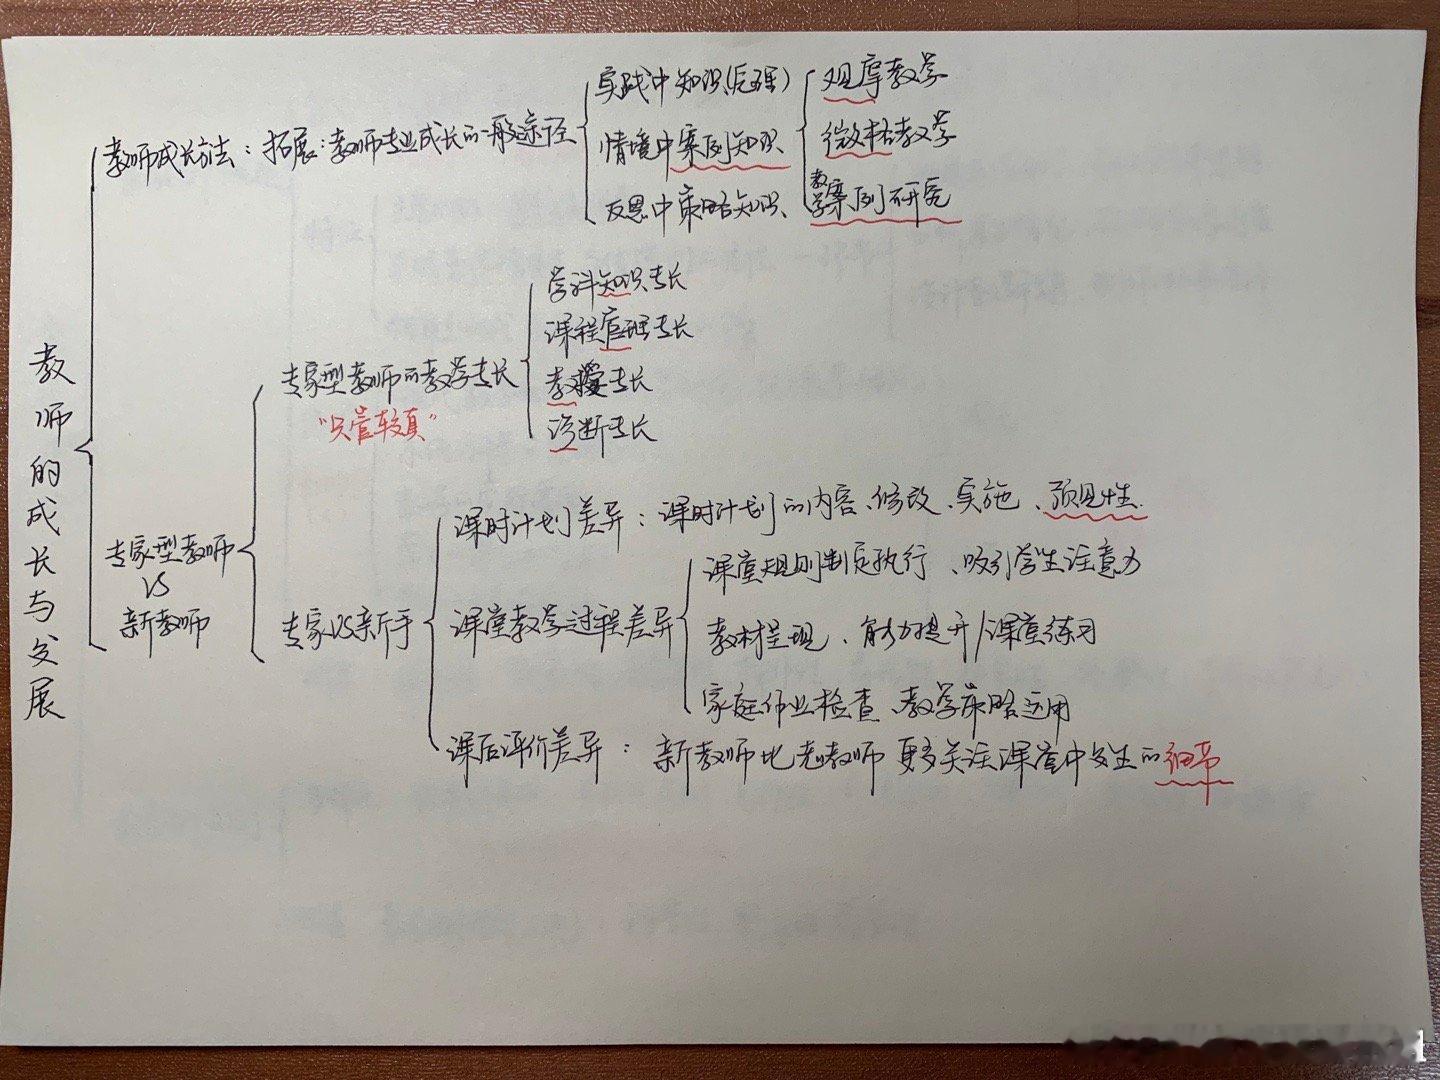 教师的成长与发展
教师成长方法：拓展：教师专业成长的一般途径
实践中知识(原理)
情境中案例知识
反思中策略知识
观摩教学
微格教学
教学案例研究
专家型教师
VS
新教师
专家型教师的教学专长
“只管较真”
学科知识专长
课程管理专长
教授专长
诊断专长
专家VS新手
课时计划差异：课时计划的内容、修改、实施、预见性.
课堂教学过程差异
课堂规则制定执行、吸引学生注意力
教材呈现、能力提升/课堂练习
家庭作业检查、教学策略运用
课后评价差异：新教师比老教师更多关注课堂中发生的细节